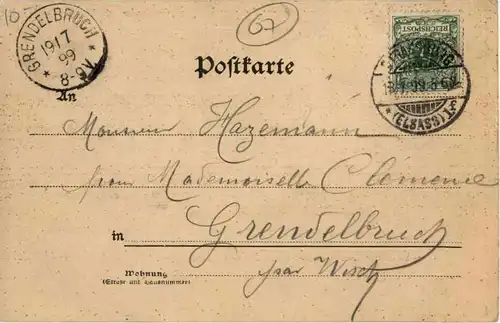 10
67
GRENDELBRUCH
19 17
99
* 8-9V. *
REICHSPOST
STRASSBURG
* (ELSASS) *
Postkarte
An
Monsieur Hazemann
pour Mademoiselle Clémence
in Grendelbruch
par Wisch
Wohnung
(Straße und Hausnummer)